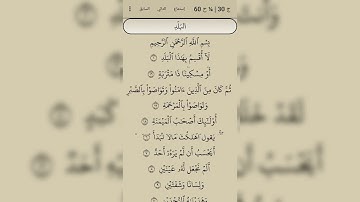 ج 30 | ¼ ح 60
استماع التالي السابق
البَلَدِ
بِسْمِ اللَّهِ الرَّحْمَٰنِ الرَّحِيمِ
لَا أُقْسِمُ بِهَٰذَا الْبَلَدِ
أَوْ مِسْكِينًا ذَا مَتْرَبَةٍ
ثُمَّ كَانَ مِنَ الَّذِينَ ءَامَنُوا۟ وَتَوَاصَوْا۟ بِالصَّبْرِ
وَتَوَاصَوْا۟ بِالْمَرْحَمَةِ
أُو۟لَٰٓئِكَ أَصْحَٰبُ الْمَيْمَنَةِ
يَقُولُ أَهْلَكْتُ مَالًا لُّبَدًا
أَيَحْسَبُ أَن لَّمْ يَرَهُۥٓ أَحَدٌ
أَلَمْ نَجْعَل لَّهُۥ عَيْنَيْنِ
وَلِسَانًا وَشَفَتَيْنِ
وَهَدَيْنَٰهُ النَّجْدَيْنِ